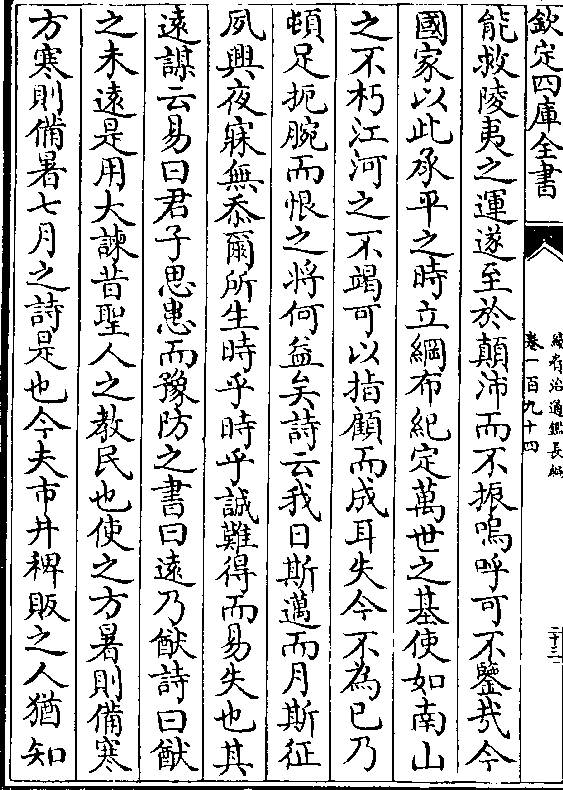 欽定四庫全書
續資治通鑑長編
卷一百九十四
二十三
能救陵夷之運遂至於顛沛而不振嗚呼可不鑒㢤今
國家以此承平之時立綱布紀定萬世之基使如南山
之不朽江河之不竭可以指顧而成耳失今不為已乃
頓足扼腕而恨之將何益矣詩云我日斯邁而月斯征
夙興夜寐無忝爾所生時乎時乎誠難得而易失也其
遠謀云易曰君子思患而豫防之書曰遠乃猷詩曰猷
之未遠是用大諫昔聖人之教民也使之方暑則備寒
方寒則備暑七月之詩是也今夫市井稗販之人猶知